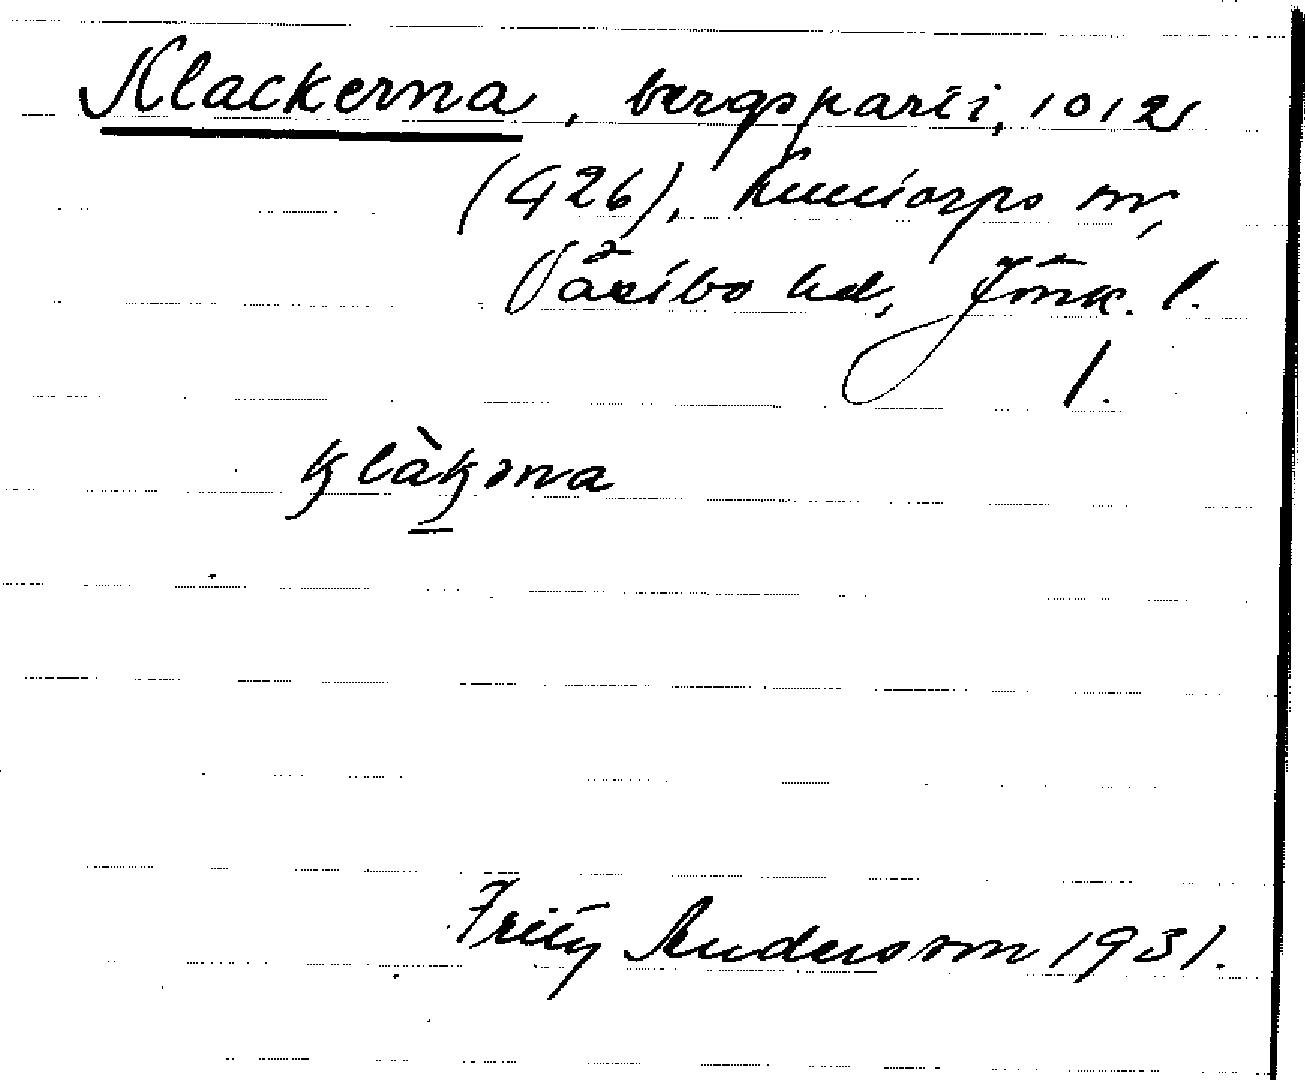 Klackerna, bergsparti, 1012
(426), Kulltorps sn,
Västbo hd, Jönk. l.
1.
klàkəna
Fritz Andersson 1931.